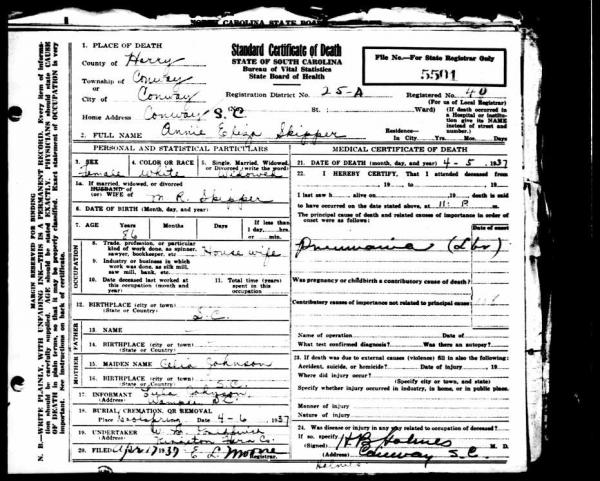 1. PLACE OF DEATH
County of Horry
Township of Conway
or
City of Conway
Home Address Conway S.C
2. FULL NAME Annie Eliza Skipper
Standard Certificate of Death
STATE OF SOUTH CAROLINA
Bureau of Vital Statistics
State Board of Health
Registration District No. 25-A
(No. St.: Ward)
File No.—For State Registrar Only
5501
Registered No. 40
(For use of Local Registrar)
(If death occurred in a Hospital or Institution give its NAME instead of street and number.)
Residence—
In City Yrs. Mos. Days
PERSONAL AND STATISTICAL PARTICULARS
3. SEX Female
4. COLOR OR RACE White
5. Single, Married, Widowed, or Divorced (write the word) Widowed
5a. If married, widowed, or divorced
HUSBAND of
(or) WIFE of M R. Skipper
6. DATE OF BIRTH (Month, day, and year)
7. AGE Years 86 Months Days If less than 1 day, hrs. or min.
OCCUPATION
8. Trade, profession, or particular kind of work done, as spinner, sawyer, bookkeeper, etc House wife
9. Industry or business in which work was done, as silk mill, saw mill, bank, etc.
10. Date deceased last worked at this occupation (month and year)
11. Total time (years) spent in this occupation
12. BIRTHPLACE (city or town)
(State or Country) S.C.
FATHER
13. NAME
14. BIRTHPLACE (city or town)
(State or Country)
MOTHER
15. MAIDEN NAME Celia Johnson
16. BIRTHPLACE (city or town)
(State or Country) S.C.
17. INFORMANT
(Address)
18. BURIAL, CREMATION, OR REMOVAL
Place Date 4-6 1937
19. UNDERTAKER
(Address)
20. FILED Apr 17 1937 E L Moore
Registrar.
MEDICAL CERTIFICATE OF DEATH
21. DATE OF DEATH (month, day, and year) 4-5 1937
22. I HEREBY CERTIFY, That I attended deceased from
19 to 19
I last saw h alive on 19 death is said
to have occurred on the date stated above, at 11: P m.
The principal cause of death and related causes of importance in order of onset were as follows:
Date of onset
Pneumonia (Lbr)
Was pregnancy or childbirth a contributory cause of death?
Contributory causes of importance not related to principal cause:
Name of operation Date of
What test confirmed diagnosis? Was there an autopsy?
23. If death was due to external causes (violence) fill in also the following:
Accident, suicide, or homicide? Date of injury 19
Where did injury occur?
(Specify city or town, and state)
Specify whether injury occurred in industry, in home, or in public place.
Manner of injury
Nature of injury
24. Was disease or injury in any way related to occupation of deceased?
If so, specify
(Signed) H B Holmes M. D.
(Address) Conway S.C.
Holmes
MARGIN RESERVED FOR BINDING
N. B.—WRITE PLAINLY, WITH UNFADING INK—THIS IS A PERMANENT RECORD. Every item of information should be carefully supplied. AGE should be stated EXACTLY. PHYSICIANS should state CAUSE OF DEATH in plain terms, so that it may be properly classified. Exact statement of OCCUPATION is very important. See instructions on back of certificate.